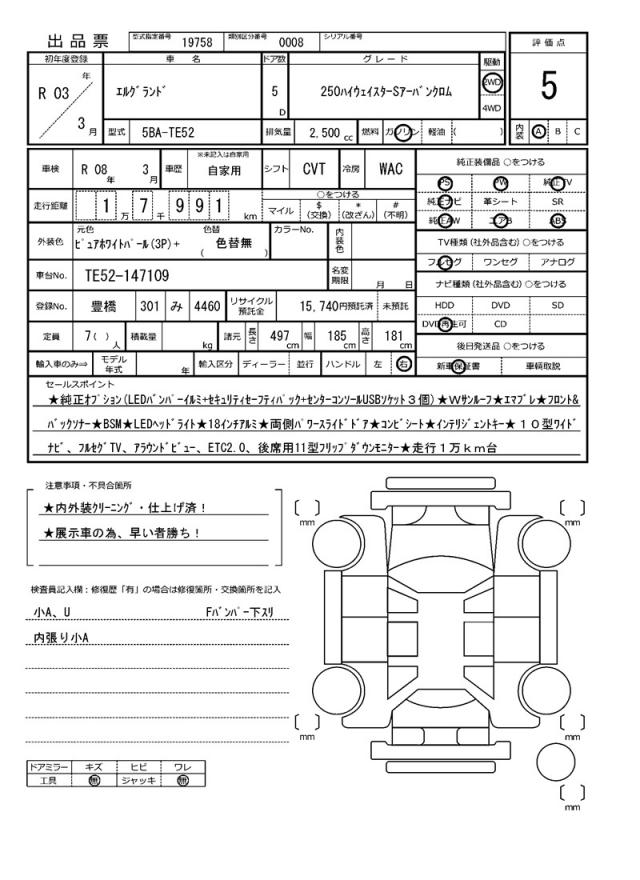 出品票 型式指定番号 19758 類別区分番号 0008 シリアル番号
初年度登録 車名 ドア数 グレード 駆動 評価点
R 03 年 3 月 エルグランド 5 D 250ハイウェイスターSアーバンクロム 2WD 4WD 5
型式 5BA-TE52 排気量 2,500 cc 燃料 ガソリン 軽油 ( ) 内装 A B C
車検 R 08 年 3 月 車歴 ※未記入は自家用 自家用 シフト CVT 冷房 WAC 純正装備品 ○をつける
PS PW 純正TV
走行距離 1 万 7 千 9 9 1 km ○をつける マイル $ (交換) * (改ざん) # (不明) 純正ナビ 革シート SR
純正AW エアB ABS
外装色 元色 ピュアホワイトパール(3P)+ 色替 ( 色替無 ) カラーNo. 内装色 TV種類 (社外品含む) ○をつける
フルセグ ワンセグ アナログ
車台No. TE52-147109 名変期限 月 日 ナビ種類 (社外品含む) ○をつける
登録No. 豊橋 301 み 4460 リサイクル預託金 15,740円預託済 未預託 HDD DVD SD
DVD再生可 CD
定員 7( ) 人 積載量 kg 諸元 長さ 497 cm 幅 185 cm 高さ 181 cm 後日発送品 ○をつける
輸入車のみ⇒ モデル年式 年 輸入区分 ディーラー 並行 ハンドル 左 右 新車保証書 車輌取説
セールスポイント
★純正オプション(LEDバンパーイルミ+セキュリティセーフティパック+センターコンソールUSBソケット3個)★Wサンルーフ★エマブレ★フロント&
バックソナー★BSM★LEDヘッドライト★18インチアルミ★両側パワースライドドア★コンビシート★インテリジェントキー★10型ワイド
ナビ、フルセグTV、アラウンドビュー、ETC2.0、後席用11型フリップダウンモニター★走行1万km台
注意事項・不具合箇所
★内外装クリーニング・仕上げ済!
★展示車の為、早い者勝ち!
検査員記入欄:修復歴「有」の場合は修復箇所・交換箇所を記入
小A、U Fバンパー下スリ
内張り小A
ドアミラー キズ ヒビ ワレ
工具 無 ジャッキ 無
mm
mm
mm
mm
mm